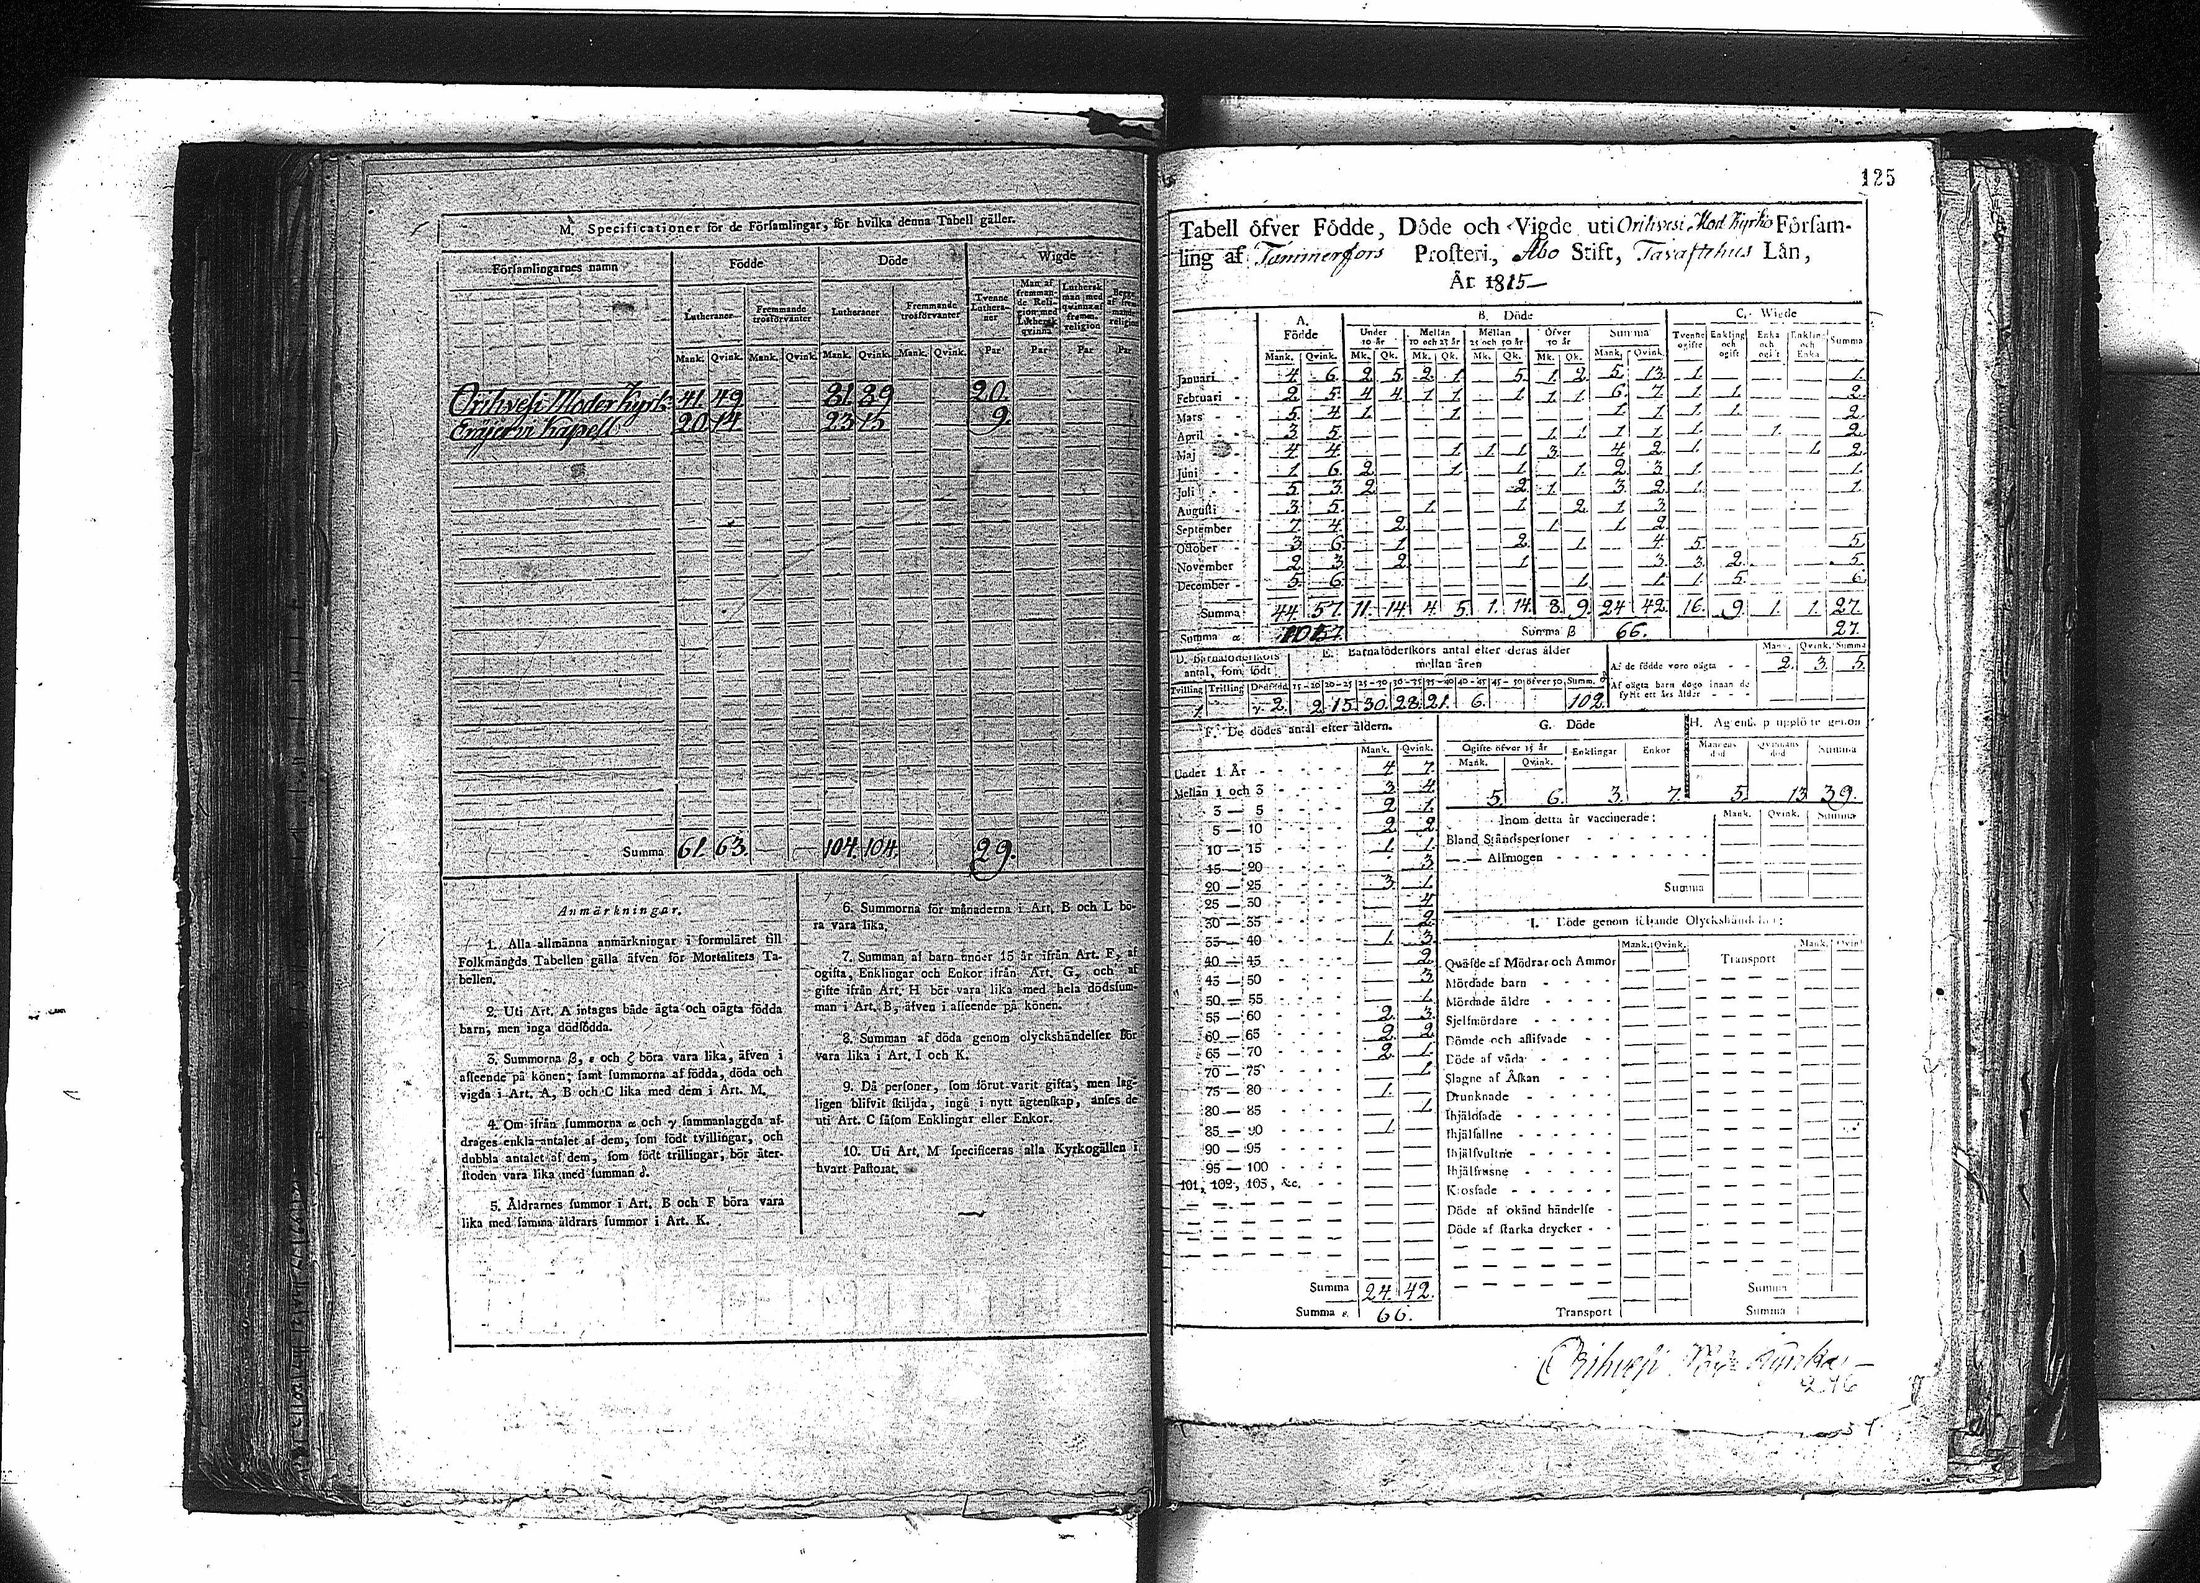 M. Specificationer för de Församlingar, för hvilka denna Tabell gäller.
Församlingarnes namn Födde Döde Wigde
Lutheraner Fremmande trosförvanter Lutheraner Fremmande trosförvanter Tvenne Lutheraner Man af fremmande Religion med Luthersk qvinna Luthersk man med qvinna af fremm. religion
Mank. Qvink. Mank. Qvink. Mank. Qvink. Mank. Qvink. Par Par Par Par
Orihvesi Moder Kyrk. 41 49 81 89 20.
Eräjervi Kapell 20 14 23 15 9.
Summa 61. 63. 104. 104. 29.
Anmärkningar.
1. Alla allmänna anmärkningar i formuläret till
Folkmängds Tabellen gälla äfven för Mortalitets Ta-
bellen.
2. Uti Art. A intagas både ägta och oägta födda
barn, men inga dödfödda.
3. Summorna β, ε och ζ böra vara lika, äfven i
afseende på könen; samt summorna af födda, döda och
vigda i Art. A, B och C lika med dem i Art. M.
4. Om ifrån summorna α och γ sammanlaggda af-
drages enkla antalet af dem, som födt tvillingar, och
dubbla antalet af dem, som födt trillingar, bör åter-
stoden vara lika med summan δ.
5. Åldrarnes summor i Art. B och F böra vara
lika med samma åldrars summor i Art. K.
6. Summorna för månaderna i Art. B och L bö-
ra vara lika.
7. Summan af barn under 15 år ifrån Art. F, af
ogifta, Enklingar och Enkor ifrån Art. G, och af
gifte ifrån Art. H bör vara lika med hela dödssum-
man i Art. B, äfven i afseende på könen.
8. Summan af döda genom olyckshändelser bör
vara lika i Art. I och K.
9. Då personer, som förut varit gifta, men lag-
ligen blifvit skiljda, ingå i nytt ägtenskap, anses de
uti Art. C såsom Enklingar eller Enkor.
10. Uti Art. M specificeras alla Kyrkogällen i
hvart Pastorat.
125
Tabell öfver Födde, Döde och Vigde uti Orihvesi Mod Kyrko Församling
ling af Tammerfors Prosteri, Åbo Stift, Tavastehus Län,
År 1815
A. Födde B. Döde C. Wigde
Under 10 år Mellan 10 och 25 år Mellan 25 och 50 år Öfver 50 år Summa Tvenne ogifte Enkling och ogift Enka och ogift Enkling och Enka Summa
Mank. Qvink. Mk. Qk. Mk. Qk. Mk. Qk. Mk. Qk. Mank. Qvink.
Januari 4. 6. 2. 5. 2. 1. 5. 1. 2. 5. 13. 1. 1.
Februari 2. 5. 4. 4. 1. 1. 1. 1. 1. 6. 7. 1. 1. 2.
Mars 5. 4. 1. 1. 1. 1. 1. 1. 2.
April 3. 5. 1. 1. 1. 1. 1. 1. 2.
Maj 4. 4. 1. 1. 1. 3. 4. 2. 1. 1. 2.
Juni 1. 6. 2. 1. 1. 1. 2. 3. 1. 1.
Juli 5. 3. 2. 2. 1. 3. 2. 1. 1.
Augusti 3. 5. 1. 1. 2. 1. 3.
September 7. 4. 2. 1. 1. 2.
October 3. 6. 1. 2. 1. 4. 5. 5.
November 2. 3. 2. 1. 3. 3. 2. 5.
December 5. 6. 1. 1. 1. 5. 6.
Summa 44. 57. 11. 14. 4. 5. 1. 14. 8. 9. 24. 42. 16. 9. 1. 1. 27.
Summa α Summa β 66. 27.
D. Barnaföderskors antal, som födt E. Barnaföderskors antal efter deras ålder mellan åren
Tvilling Trilling Dödfödd 15-20 20-25 25-30 30-35 35-40 40-45 45-50 öfver 50 Summ. δ
1. γ. 2. 2. 15. 30. 28. 21. 6. 102
Mank. Qvink. Summa
Af de födde voro oägta 2. 3. 5.
Af oägta barn dogo innan de fyllt ett års ålder
F. De dödes antal efter åldern.
Mank. Qvink.
Under 1 År 4. 7.
Mellan 1 och 3 3. 4.
3 — 5 2. 1.
5 — 10 2. 2.
10 — 15 1. 1.
15 — 20 3.
20 — 25 3. 1.
25 — 30 4.
30 — 35 2.
35 — 40 1. 3.
40 — 45 2.
45 — 50 3.
50 — 55 1.
55 — 60 2. 3.
60 — 65 2. 2.
65 — 70 2. 1.
70 — 75 1.
75 — 80 1.
80 — 85 1.
85 — 90 1.
90 — 95
95 — 100
101, 102, 103, &c.
Summa 24. 42.
Summa ε. 66.
G. Döde
Ogifte öfver 15 år Enklingar Enkor
Mank. Qvink.
5. 6. 3. 7.
H. Ägtensk p upplöste genom
Mannens död Qvinnans död Summa
5. 13 39.
Inom detta år vaccinerade: Mank. Qvink. Summa
Bland Ståndspersoner
— — Allmogen
Summa
I. Döde genom följande Olyckshändelser:
Mank. Qvink. Mank. Qvink
Qväfde af Mödrar och Ammor Transport
Mördade barn
Mördade äldre
Sjelfmördare
Dömde och aflifvade
Döde af våda
Slagne af Åskan
Drunknade
Ihjälösade
Ihjälfallne
Ihjälsvultne
Ihjälfrusne
K:osfade
Döde af okänd händelse
Döde af starka drycker
Summa
Transport Summa
Orihvesi